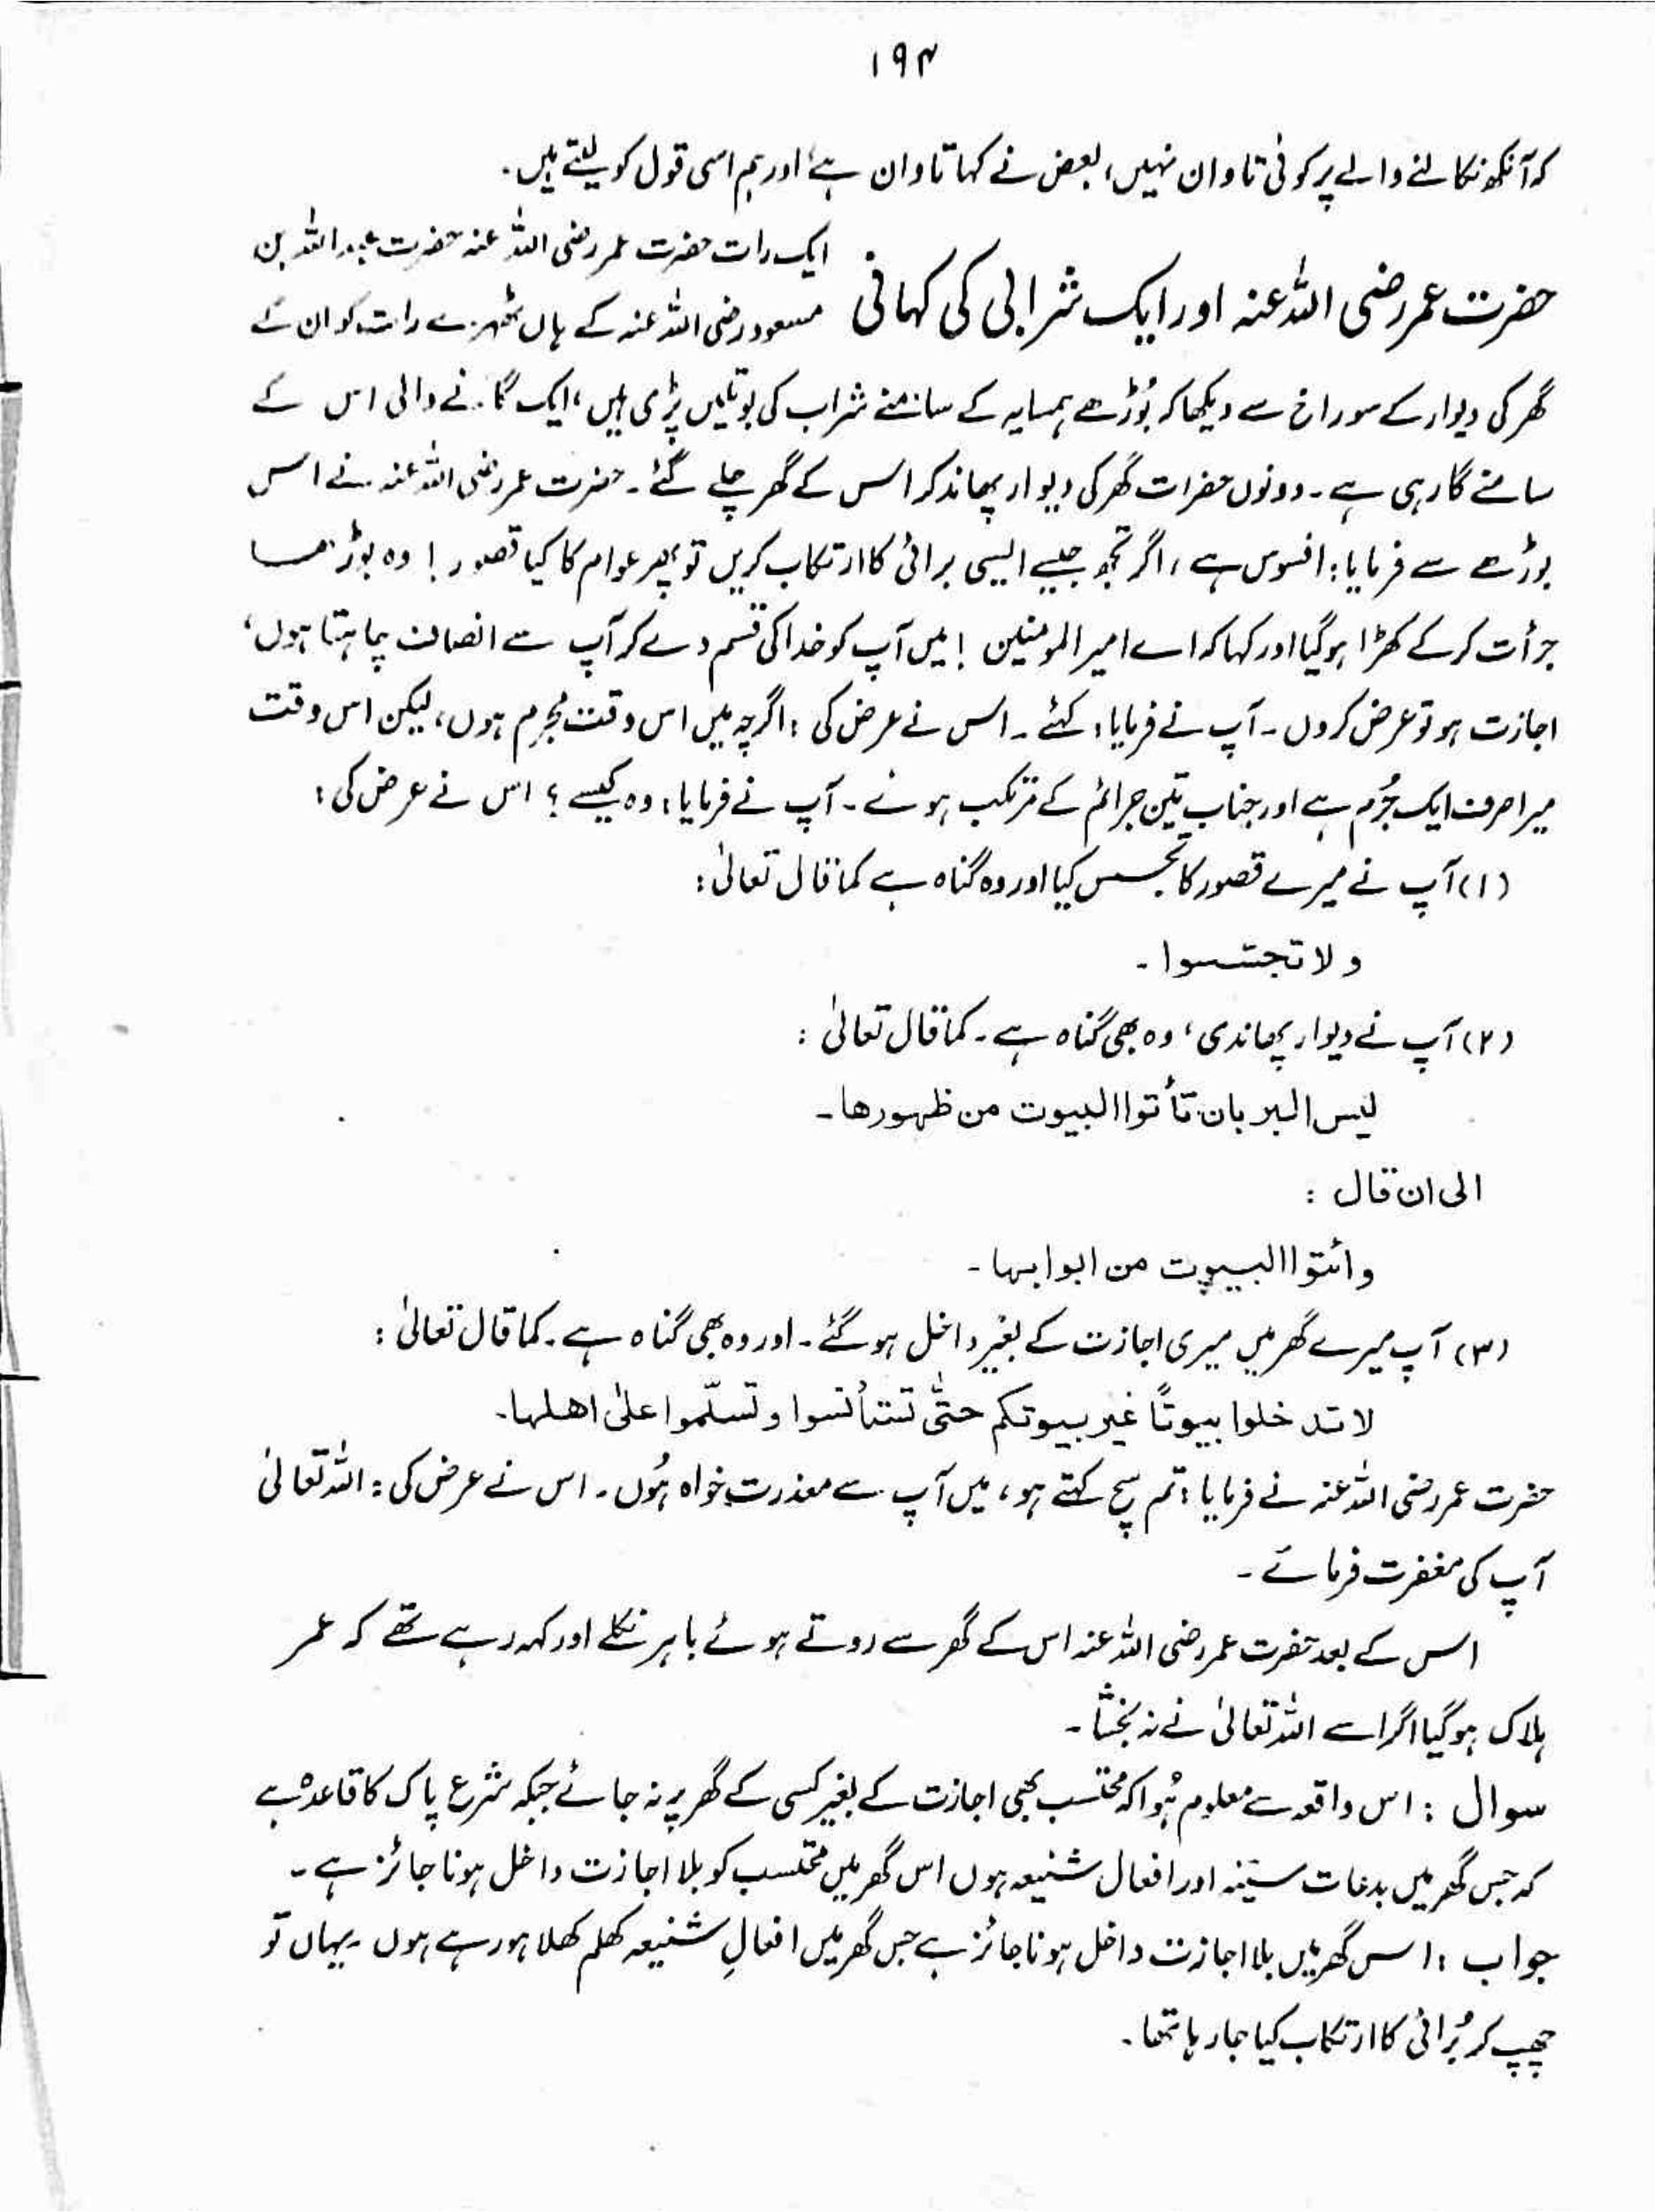 ۱۹۴
کہ آنکھ نکالنے والے پر کوئی تاوان نہیں، بعض نے کہا تاوان ہے اور ہم اسی قول کو لیتے ہیں۔
حضرت عمر رضی اللہ عنہ اور ایک شرابی کی کہانی
ایک رات حضرت عمر رضی اللہ عنہ حضرت عبداللہ بن
مسعود رضی اللہ عنہ کے ہاں ٹھہرے رات کو ان کے
گھر کی دیوار کے سوراخ سے دیکھا کہ بُوڑھے ہمسایہ کے سامنے شراب کی بوتلیں پڑی ہیں، ایک گانے والی اس کے
سامنے گا رہی ہے۔ دونوں حضرات گھر کی دیوار پھاند کر اس کے گھر چلے گئے۔ حضرت عمر رضی اللہ عنہ نے اس
بوڑھے سے فرمایا: افسوس ہے، اگر تجھ جیسے ایسی برائی کا ارتکاب کریں تو پھر عوام کا کیا قصور! وہ بوڑھا
جرأت کر کے کھڑا ہو گیا اور کہا کہ اے امیر المومنین! میں آپ کو خدا کی قسم دے کر آپ سے انصاف چاہتا ہوں،
اجازت ہو تو عرض کروں۔ آپ نے فرمایا: کہئے۔ اس نے عرض کی: اگرچہ میں اس وقت مجرم ہوں، لیکن اس وقت
میرا صرف ایک جُرم ہے اور جناب تین جرائم کے مرتکب ہوئے۔ آپ نے فرمایا: وہ کیسے؟ اس نے عرض کی:
(۱) آپ نے میرے قصور کا تجسس کیا اور وہ گناہ ہے کما قال تعالیٰ:
ولا تجسّسوا۔
(۲) آپ نے دیوار پھاندی، وہ بھی گناہ ہے۔ کما قال تعالیٰ:
لیس البر بان تأتوا البیوت من ظہورھا۔
الی ان قال:
وائتوا البیوت من ابوابہا۔
(۳) آپ میرے گھر میں میری اجازت کے بغیر داخل ہو گئے۔ اور وہ بھی گناہ ہے۔ کما قال تعالیٰ:
لا تدخلوا بیوتًا غیر بیوتکم حتّٰی تستأنسوا وتسلّموا علیٰ اھلہا۔
حضرت عمر رضی اللہ عنہ نے فرمایا: تم سچ کہتے ہو، میں آپ سے معذرت خواہ ہُوں۔ اس نے عرض کی: اللہ تعالیٰ
آپ کی مغفرت فرمائے۔
اس کے بعد حضرت عمر رضی اللہ عنہ اس کے گھر سے روتے ہوئے باہر نکلے اور کہہ رہے تھے کہ عمر
ہلاک ہو گیا اگر اسے اللہ تعالیٰ نے نہ بخشا۔
سوال: اس واقعہ سے معلوم ہُوا کہ محتسب بھی اجازت کے بغیر کسی کے گھر پر نہ جائے جبکہ شرع پاک کا قاعدہ ہے
کہ جس گھر میں بدعات سیّئہ اور افعال شنیعہ ہوں اس گھر میں محتسب کو بلا اجازت داخل ہونا جائز ہے۔
جواب: اس گھر میں بلا اجازت داخل ہونا جائز ہے جس گھر میں افعالِ شنیعہ کھلم کھلا ہو رہے ہوں۔ یہاں تو
چھپ کر بُرائی کا ارتکاب کیا جا رہا تھا۔